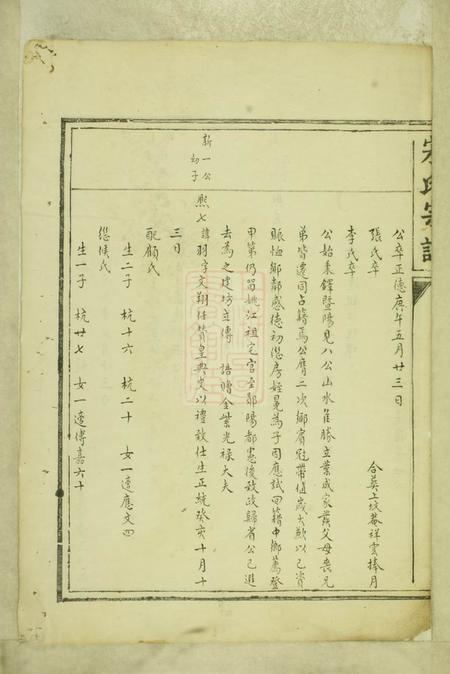 宋氏宗譜
公卒正德庚午五月廿三日
張氏卒 合葬上坟菴祥雲捧月
李氏卒
公始秉鐸暨陽見八公山水隹勝立業成家葬父母喪兄
弟皆遷同占籍焉公膺二次鄉賓冠帶值歲大歉以己資
賑恤鄉鄰感德初继房姪冕為子因應試回籍中鄉薦登
甲第仍居姚江祖宅官至鄖陽都憲後致政歸省公已進
去為之建坊立傳 誥贈金紫光祿大夫
新一公
幼子
熙七諱羽字文翔任贊皇典史以禮致仕生正統癸亥十月十
三日
配顧氏
生二子 杭十六 杭二十 女一適應文四
继候氏
生一子 杭廿七 女一適傅嘉六十